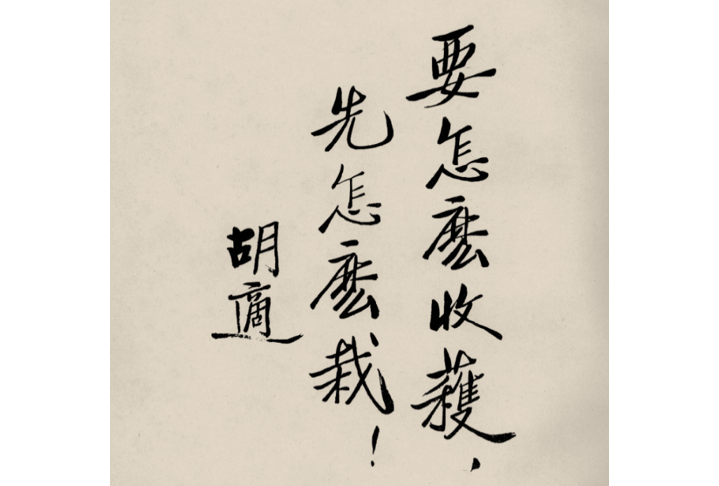 要怎麽收穫，
先怎麽栽！
胡適